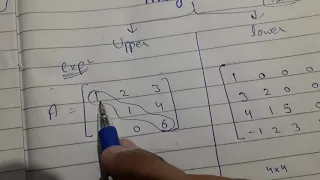 Upper
lower
exp:-
A = [1 2 3
1 4
0 6]
1 0 0 0
3 2 0 0
4 1 5 0
-1 2 3
4x4